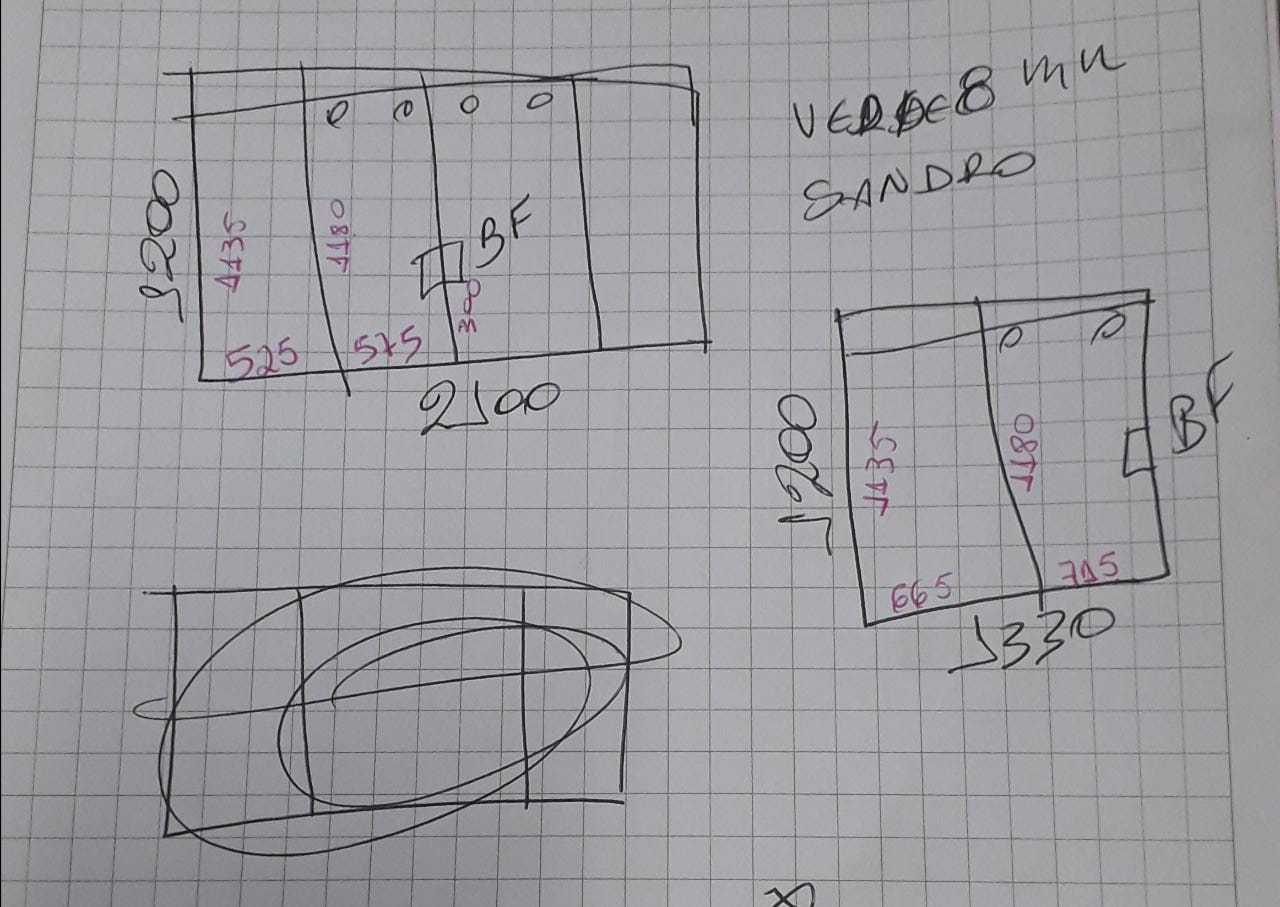 VERDE 8 mm
SANDRO
1200
1135
1180
BF
300
525
575
2100
1200
1135
1180
BF
665
715
1330